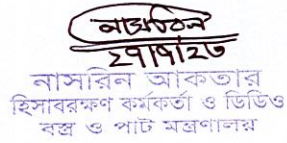 নাসরিন
২৭/৭/২৩
নাসরিন আকতার
হিসাবরক্ষণ কর্মকর্তা ও ডিডিও
বস্ত্র ও পাট মন্ত্রণালয়